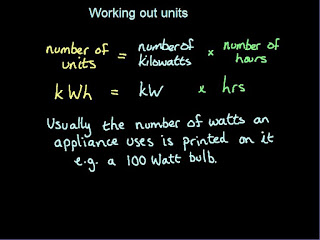 Working out units
number of units = number of kilowatts × number of hours
kWh = kW × hrs
Usually the number of watts an
appliance uses is printed on it
e.g. a 100 Watt bulb.